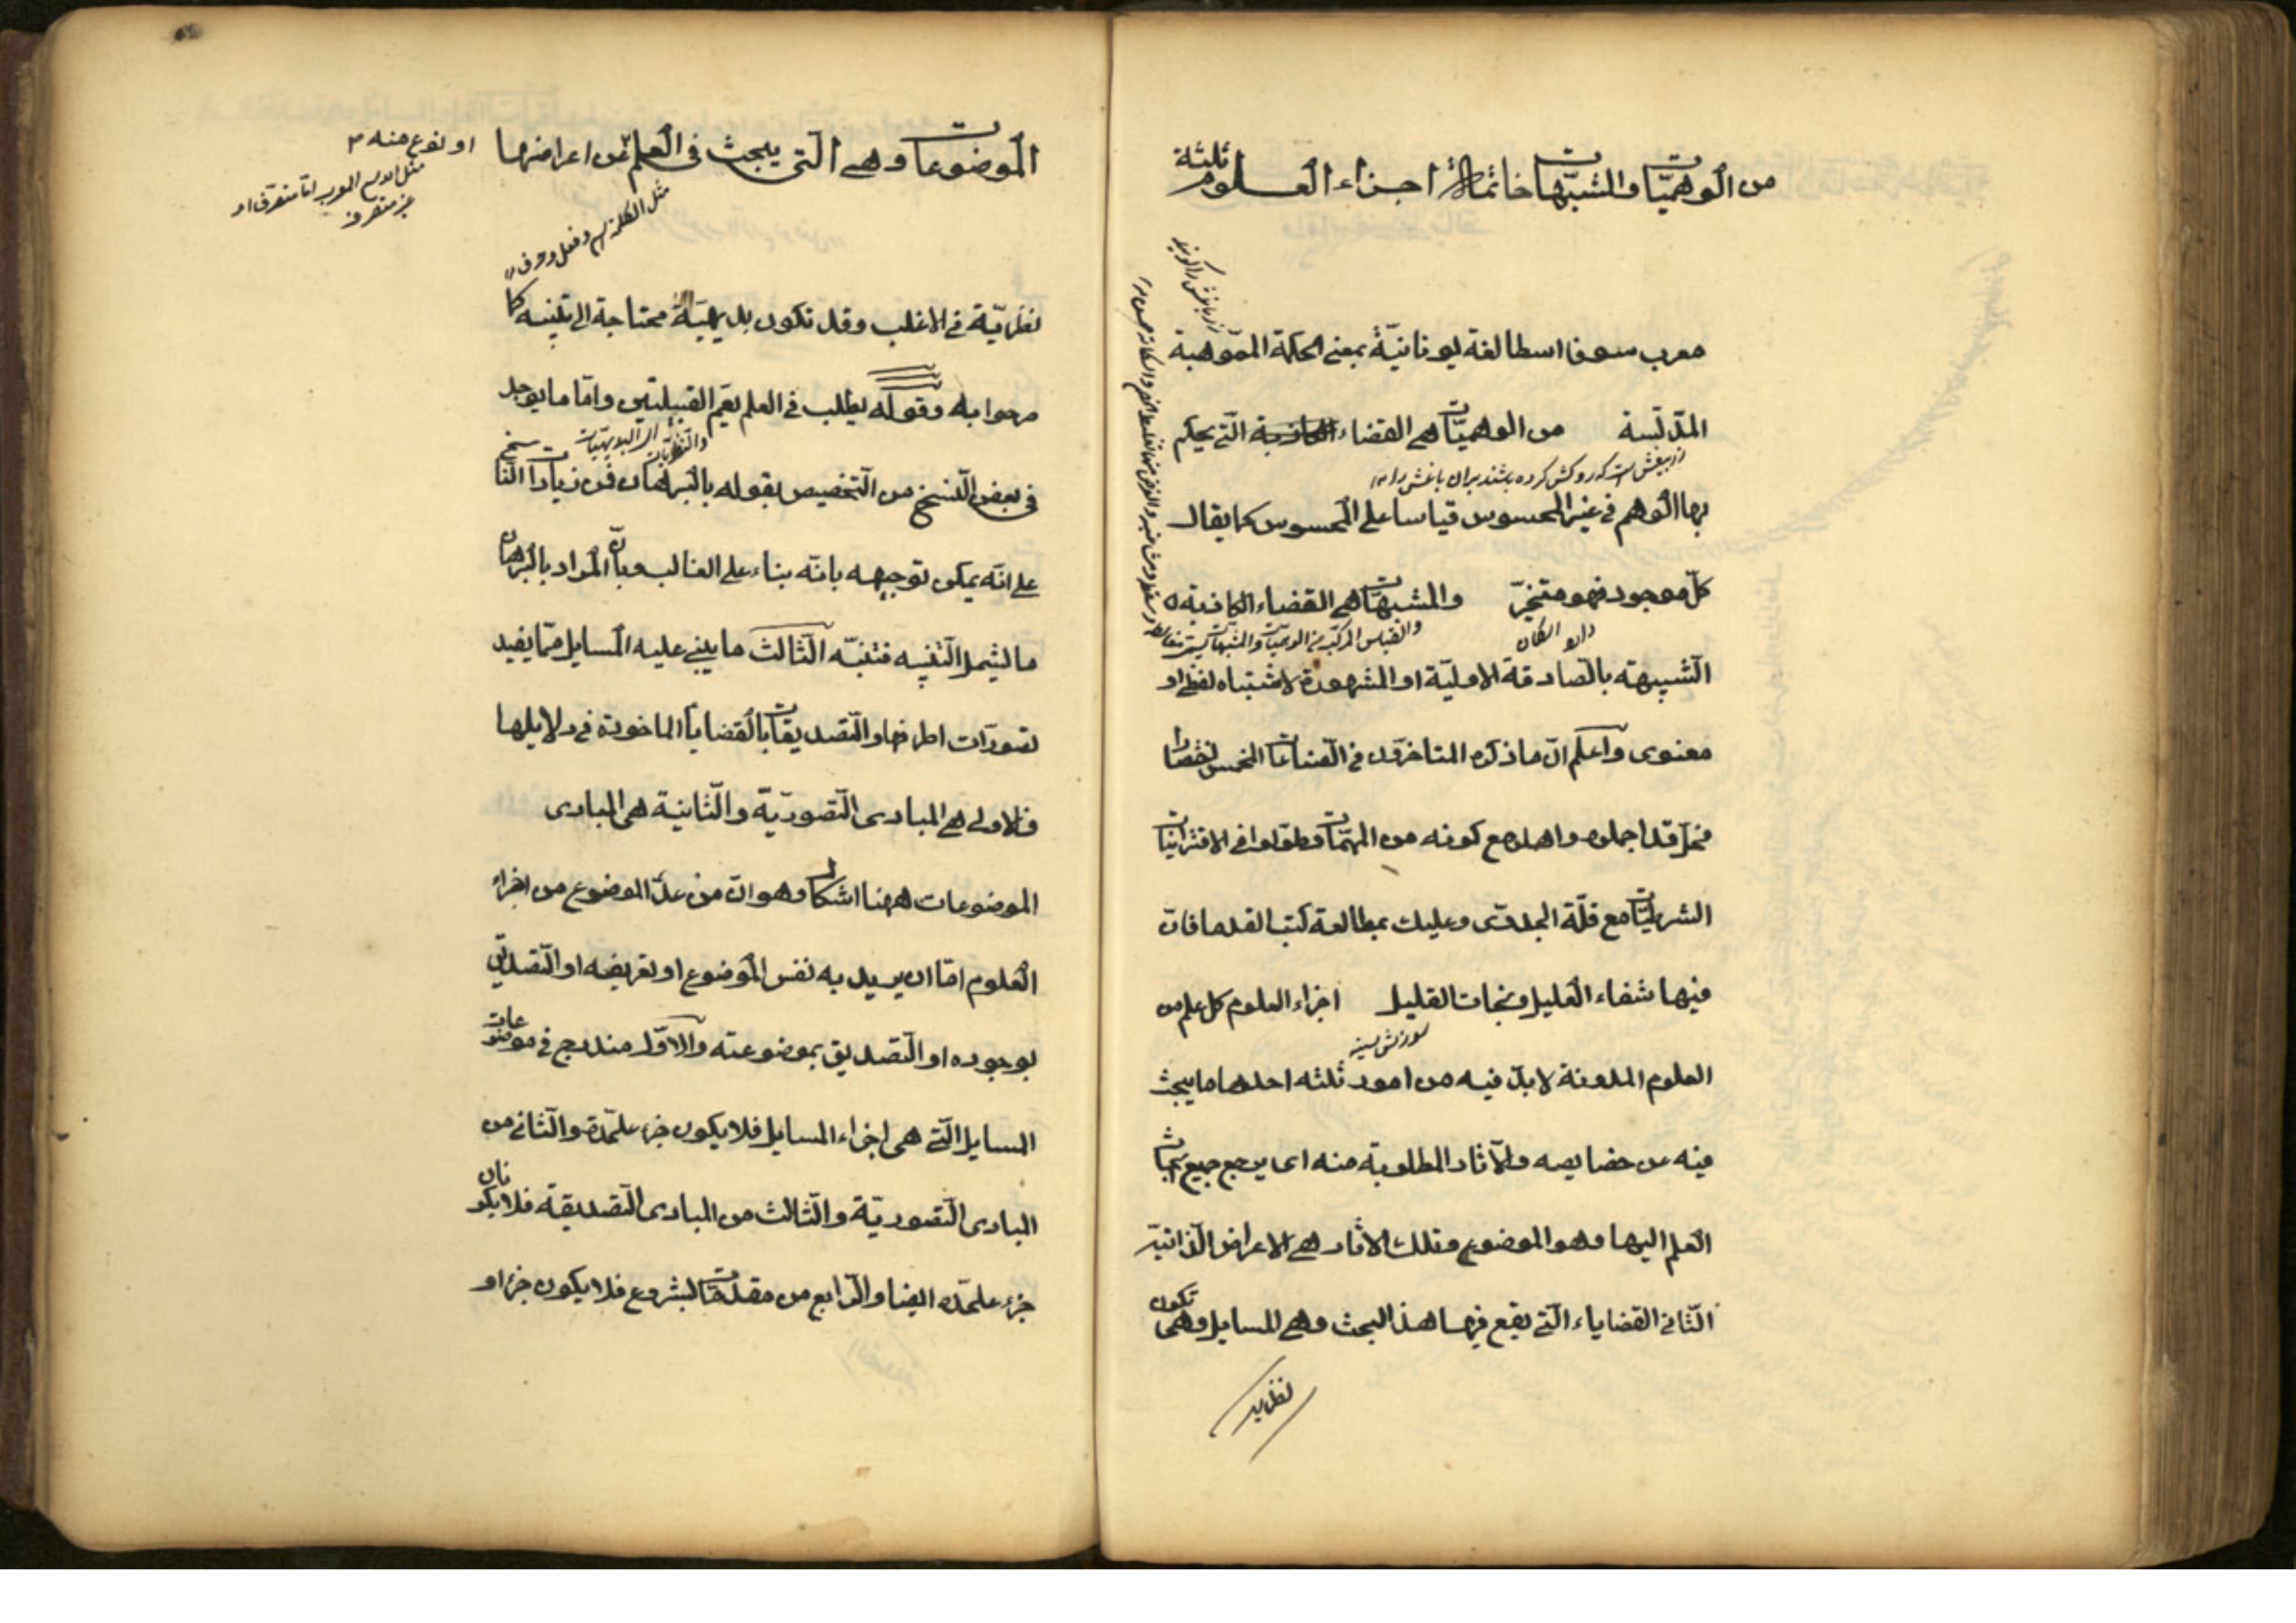 من الوهميّات والمشبّهات خاتمة اجزاء العلوم ثلثة
معرب سوفا اسطا لغة يونانيّة بمعنى الحكمة المموّهة
المدلّسة من الوهميّات هى القضاء الكاذبة التى يحكم
بها الوهم فى غير المحسوس قياسا على المحسوس كما يقال
كلّ موجود فهو متحيّز والمشبهات هى القضاء الكاذبة
والقياس المركّب من الوهميّات والمشبّهات
الشبيهة بالصادقة الاوليّة او المشهورة لاشتباه لفظى او
معنوى واعلم انّ ما ذكره المتاخرون فى الصناعات الخمس اختصارا
مخلّ قد اجملوه واهملوه مع كونه من المهمّات وطوّلوا فى الاقترانيّات
الشرطيّات مع قلّة الجدوى وعليك بمطالعة كتب القدما فانّ
فيها شفاء العليل ونجات القليل اجزاء العلوم كل علم من
العلوم المدونة لا بدّ فيه من امور ثلثه احدها ما يبحث
فيه عن خصايصه والآثار المطلوبة منه اى يرجع جميع ابحاث
العلم اليها وهو الموضوع وتلك الاثار هى الاعراض الذاتيّة
الثانى القضاياء التى يقع فيها هذا البحث وهى المسايل وهى تكون
نظرية
الموضوعات وهى التى يبحث فى العلم عن اعراضها
او نوع منه
مثل الكلمة اسم وفعل وحرف
نظريّة فى الاغلب وقد تكون بديهيّة محتاجة الى تنبيه كا
صرحوا به وقوله يطلب فى العلم يعمّ القبيلتين وامّا ما يوجد
فى بعض النسخ من التخصيص بقوله بالبرهان فمن زيادات النا
سخ
على انّه يمكن توجيهه بانّه بناء على الغالب وبانّ المراد بالبرهان
ما يشمل التنبيه فتنبّه الثالث ما يبنى عليه المسايل ممّا يفيد
تصوّرات اطرافها والتصديقات بالقضايا الماخوذة فى دلايلها
فالاولى هى المبادى التصوريّة والثانية هى المبادى
الموضوعات ههنا اشكال وهو انّ من عدّ الموضوع من اجزاء
العلوم امّا ان يريد به نفس الموضوع او تعريفه او التصديق
بوجوده او التصديق بموضوعيته والاوّل مندرج فى موضوعات
المسايل التى هى اجزاء المسايل فلا يكون جزء علىحدة والثانى من
المبادى التصوريّة والثالث من المبادى التصديقة فلا يكونان
جزء علىحده ايضا والرابع من مقدمات الشروع فلا يكون جزءا و